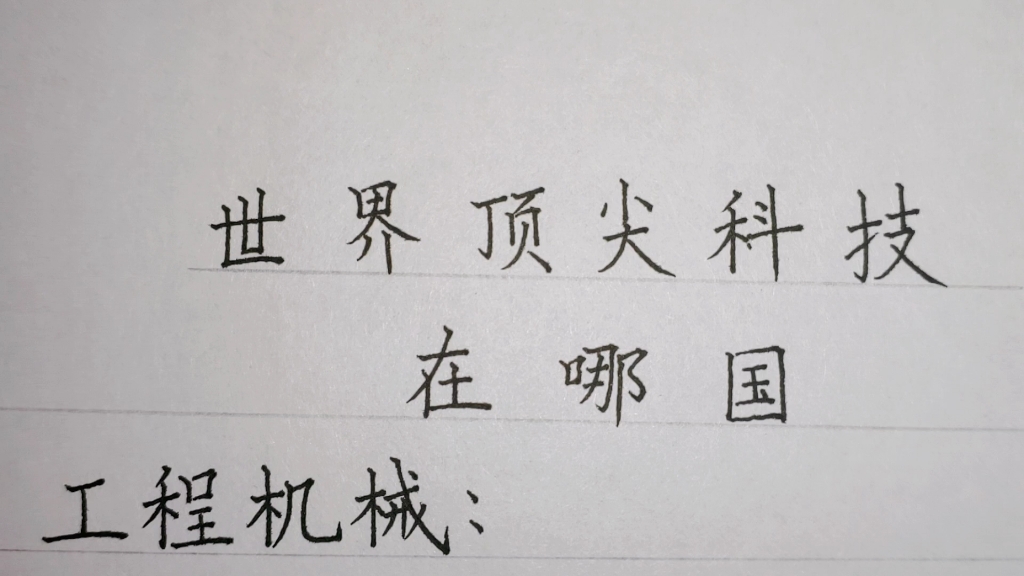 世界顶尖科技
在哪国
工程机械：